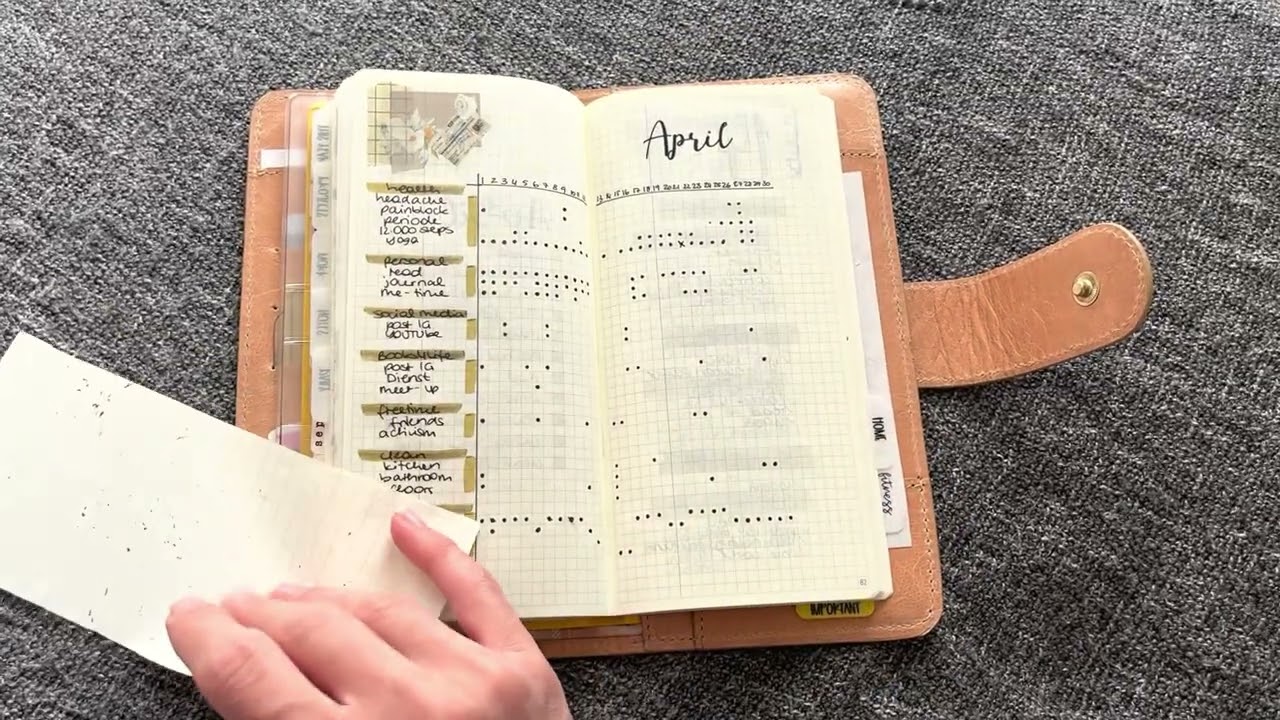 April
1 2 3 4 5 6 7 8 9 10 11
13 14 15 16 17 18 19 20 21 22 23 24 25 26 27 28 29 30
health
headache
painblock
periode
12.000 steps
yoga
personal
read
journal
me-time
social media
post IG
YOUTUBE
Bookdylife
post IG
Dienst
meet-up
freetime
friends
activism
clean
kitchen
bathroom
floors
HOME
fitness
82
IMPORTANT